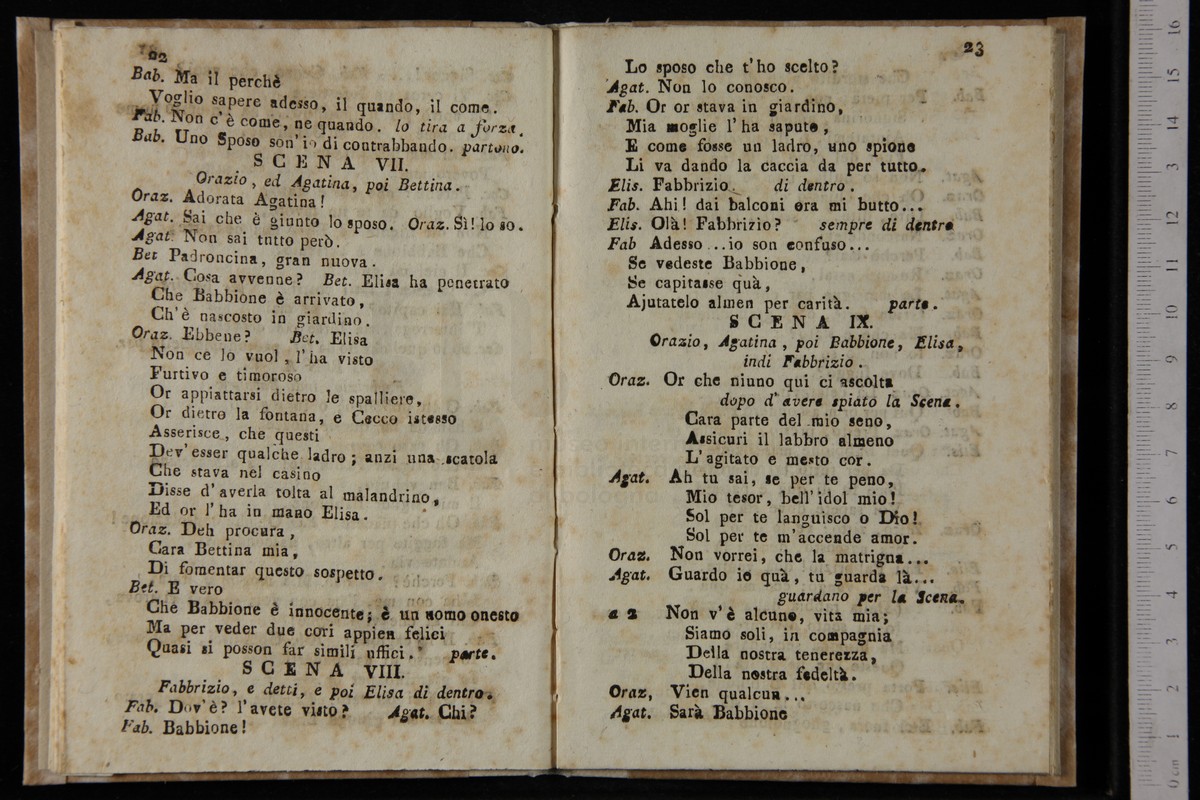 22
Bab. Ma il perchè
Voglio sapere adesso, il quando, il come.
Fab. Non c'è come, ne quando. lo tira a forza.
Bab. Uno Sposo son' io di contrabbando. partono.
SCENA VII.
Orazio, ed Agatina, poi Bettina.
Oraz. Adorata Agatina!
Agat. Sai che è giunto lo sposo. Oraz. Sì! lo so.
Agat. Non sai tutto però.
Bet Padroncina, gran nuova.
Agat. Cosa avvenne? Bet. Elisa ha penetrato
Che Babbione è arrivato,
Ch'è nascosto in giardino.
Oraz. Ebbene? Bet. Elisa
Non ce lo vuol, l'ha visto
Furtivo e timoroso
Or appiattarsi dietro le spalliere,
Or dietro la fontana, e Cecco istesso
Asserisce, che questi
Dev'esser qualche ladro; anzi una scatola
Che stava nel casino
Disse d'averla tolta al malandrino,
Ed or l'ha in mano Elisa.
Oraz. Deh procura,
Cara Bettina mia,
Di fomentar questo sospetto.
Bet. E vero
Che Babbione è innocente; è un uomo onesto
Ma per veder due cori appien felici
Quasi si posson far simili uffici. parte.
SCENA VIII.
Fabbrizio, e detti, e poi Elisa di dentro.
Fab. Dov'è? l'avete visto? Agat. Chi?
Fab. Babbione!
23
Lo sposo che t'ho scelto?
Agat. Non lo conosco.
Fab. Or or stava in giardino,
Mia moglie l'ha saputo,
E come fosse un ladro, uno spione
Li va dando la caccia da per tutto.
Elis. Fabbrizio. di dentro.
Fab. Ahi! dai balconi ora mi butto...
Elis. Olà! Fabbrizio? sempre di dentro
Fab Adesso ...io son confuso...
Se vedeste Babbione,
Se capitasse quà,
Ajutatelo almen per carità. parte.
SCENA IX.
Orazio, Agatina, poi Babbione, Elisa,
indi Fabbrizio.
Oraz. Or che niuno qui ci ascolta
dopo d'avere spiato la Scena.
Cara parte del mio seno,
Assicuri il labbro almeno
L'agitato e mesto cor.
Agat. Ah tu sai, se per te peno,
Mio tesor, bell'idol mio!
Sol per te languisco o Dio!
Sol per te m'accende amor.
Oraz. Non vorrei, che la matrigna...
Agat. Guardo io quà, tu guarda là...
guardano per la Scena.
a 2 Non v'è alcuno, vita mia;
Siamo soli, in compagnia
Della nostra tenerezza,
Della nostra fedeltà.
Oraz, Vien qualcun...
Agat. Sarà Babbione
0 cm 1 2 3 4 5 6 7 8 9 10 11 12 13 14 15 16